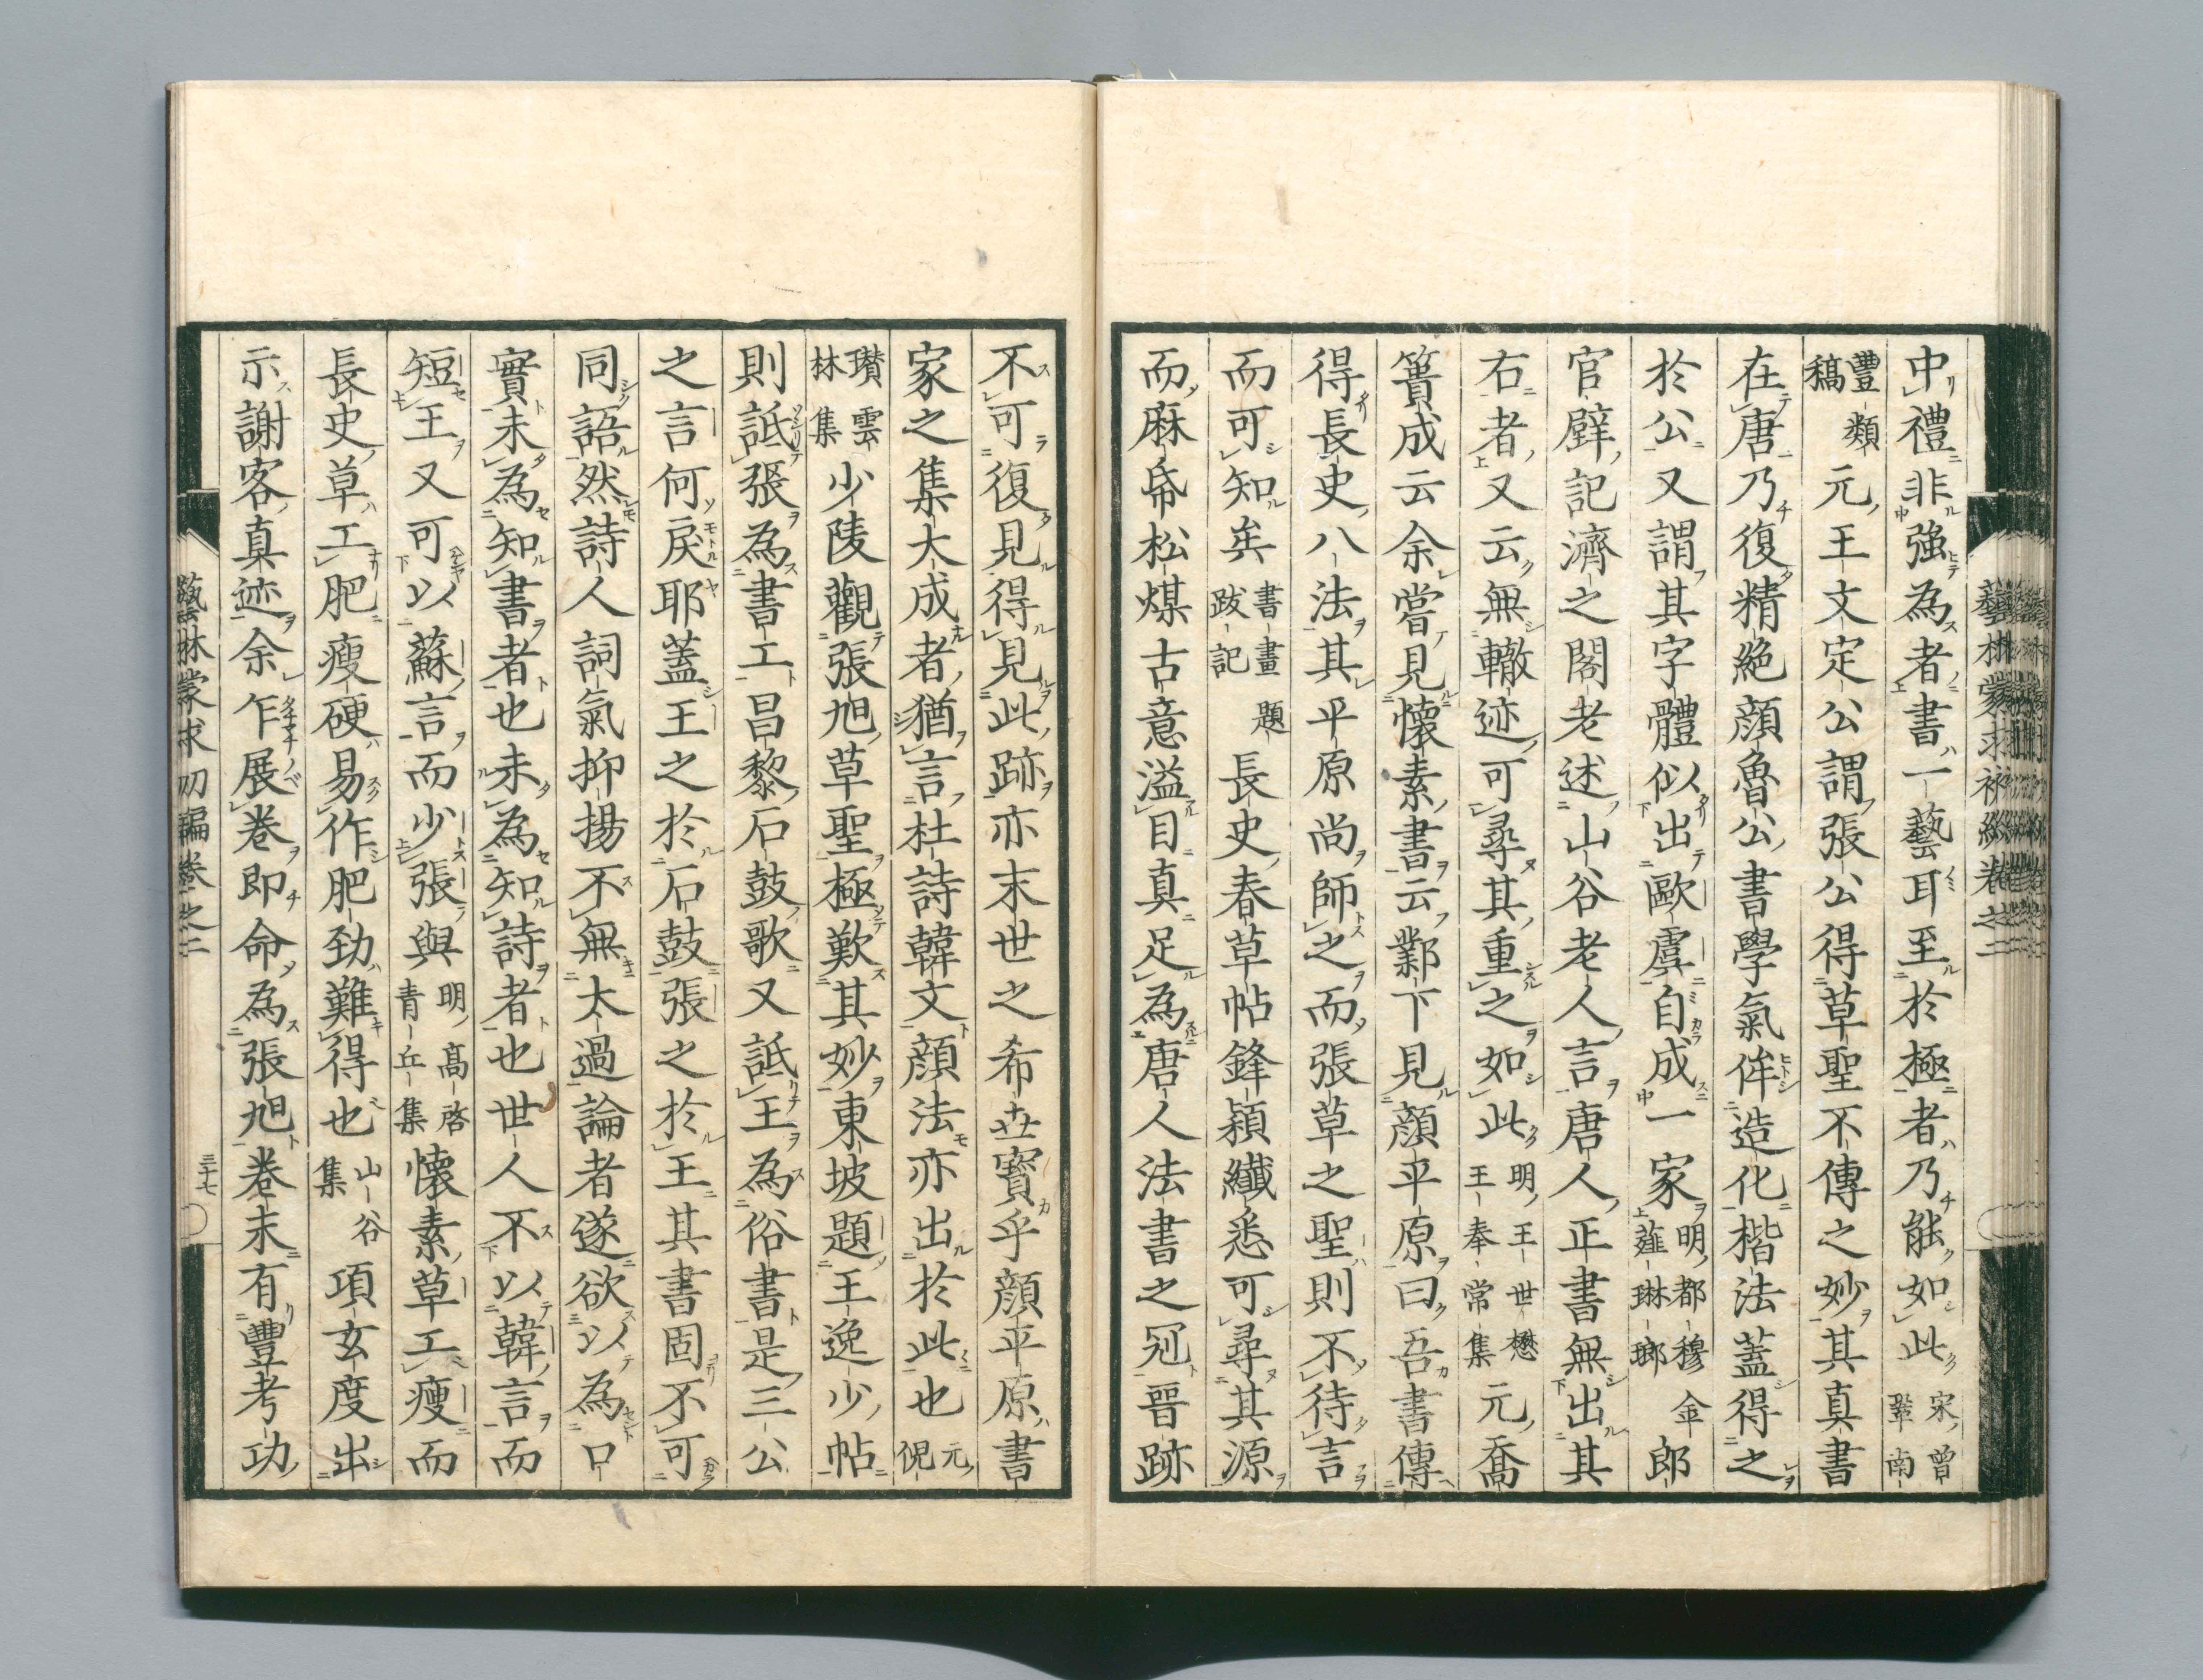 中禮非強為者書一藝耳至於極者乃能如此宋曾鞏南
豐類稿元王文定公謂張公得草聖不傳之妙其真書
在唐乃復精絕顏魯公書學氣侔造化楷法蓋得之
於公又謂其字體似出歐虞自成一家明都穆薤琳瑯金郎
官壁記濟之閣老述山谷老人言唐人正書無出其
右者又云無轍迹可尋其重之如此明王世懋王奉常集元喬
簣成云余嘗見懷素書云鄴下見顏平原曰吾書傳
得長史八法其平原尚師之而張草之聖則不待言
而可知矣書畫題跋記長史春草帖鋒穎纖悉可尋其源
而麻帋松煤古意溢目真足為唐人法書之冠晉跡
不可復見得見此跡亦末世之希世寳乎顏平原書
家之集大成者猶言杜詩韓文顏法亦出於此也元倪
瓚雲林集少陵觀張旭草聖極歎其妙東坡題王逸少帖
則詆張為書工昌黎石鼓歌又詆王為俗書是三公
之言何戾耶蓋王之於石鼓張之於王其書固不可
同語然詩人詞氣抑揚不無太過論者遂欲以為口
實未為知書者也未為知詩者也世人不以韓言而
短王又可以蘇言而少張與明高啓青丘集懷素草工瘦而
長史草工肥瘦硬易作肥勁難得也山谷集項玄度出
示謝客真迹余乍展卷即命為張旭卷末有豐考功
藝林蒙求初編卷之二
三十七
藝林蒙求初編卷之二